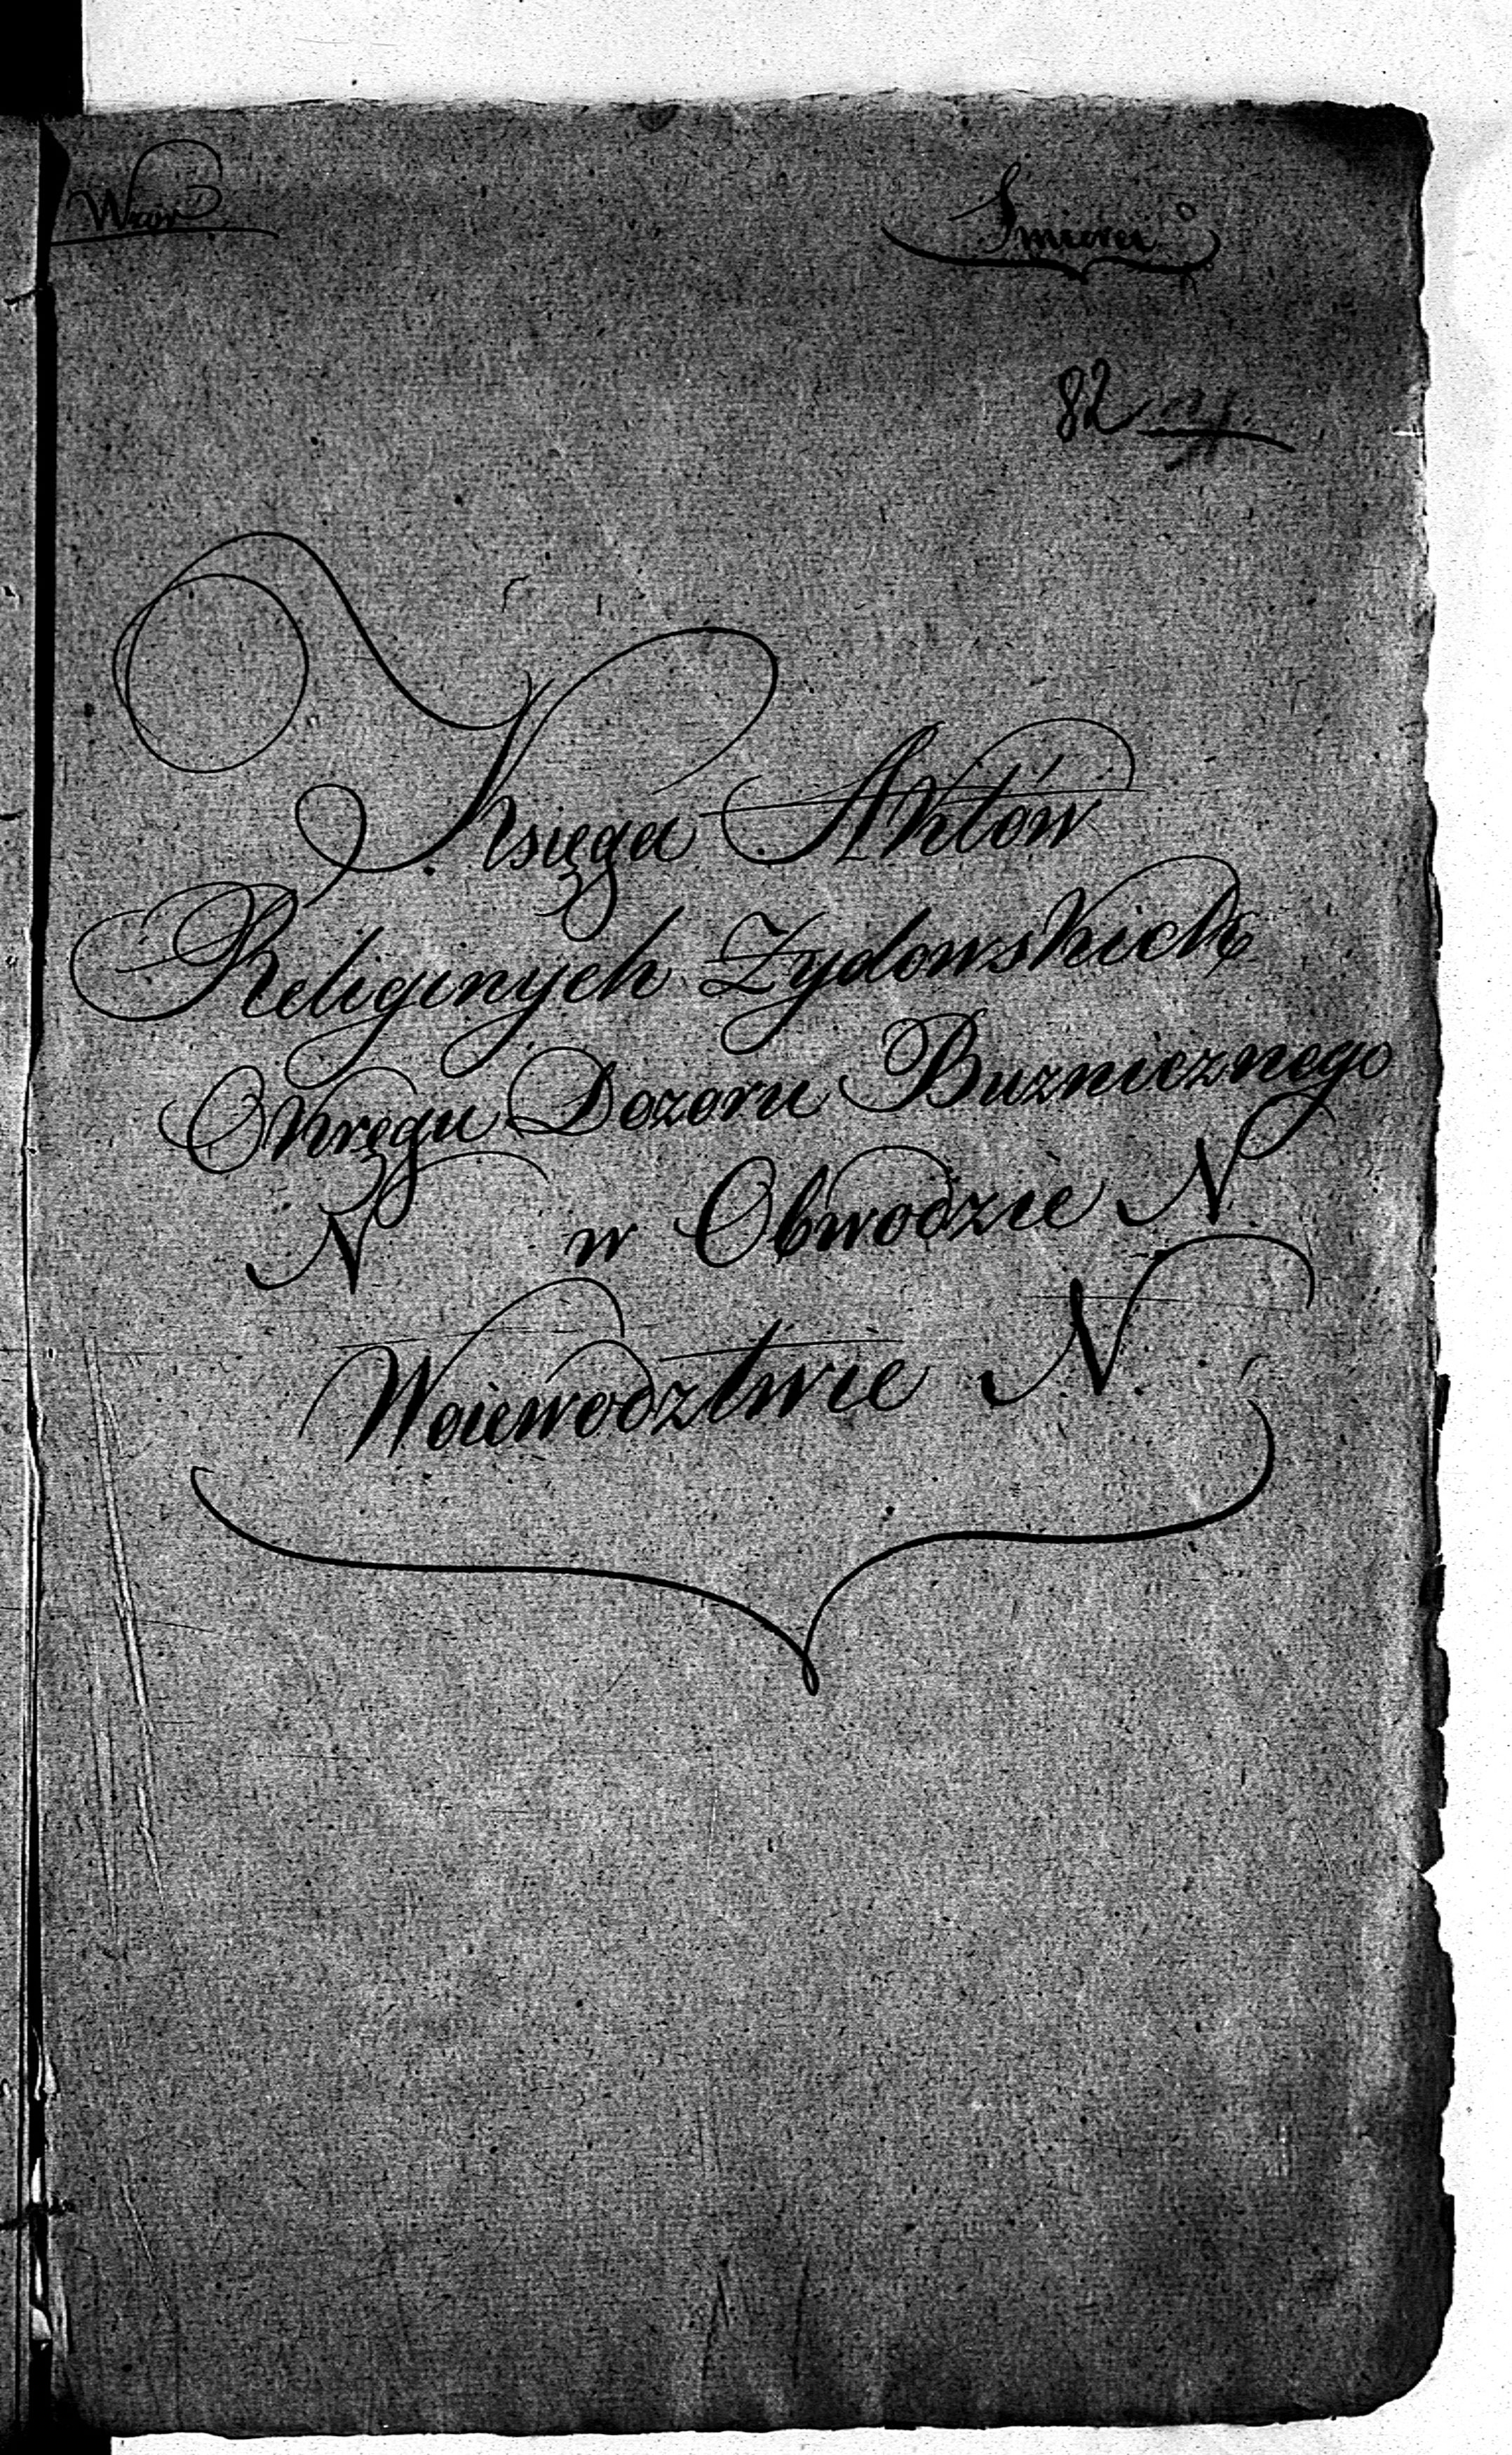 Wzór
Smierci
82
Księga Aktów
Religinych Zydowskich
Okręgu Dozoru Buznicznego
N w Obwodzie N.
Woiewodztwie N.